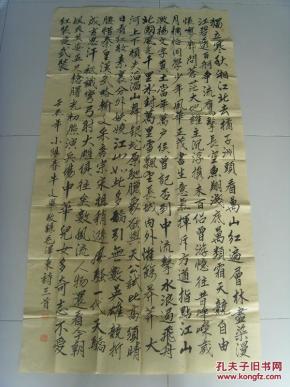 獨立寒秋湘江北去橘子洲頭看萬山紅遍層林盡染漫
江碧透百舸爭流鷹擊長空魚翔淺底萬類霜天競自由
悵寥廓問蒼茫大地誰主沉浮攜來百侶曾游憶往昔崢嶸歲
月稠恰同學少年風華正茂書生意氣揮斥方遒指點江山
激揚文字糞土當年萬戶侯曾記否到中流擊水浪遏飛舟
北國風光千里冰封萬里雪飄望長城內外惟餘莽莽大
河上下頓失滔滔山舞銀蛇原馳蠟象欲與天公試比高須晴
日看紅裝素裹分外妖嬈江山如此多嬌引無數英雄競折
腰惜秦皇漢武略輸文采唐宗宋祖稍遜風騷一代天驕
成吉思汗祇識彎弓射大雕俱往矣數風流人物還看今朝
颯爽英姿五尺槍曙光初照演兵場中華兒女多奇志不愛
紅裝愛武裝
年小雪 毛澤東詩三首